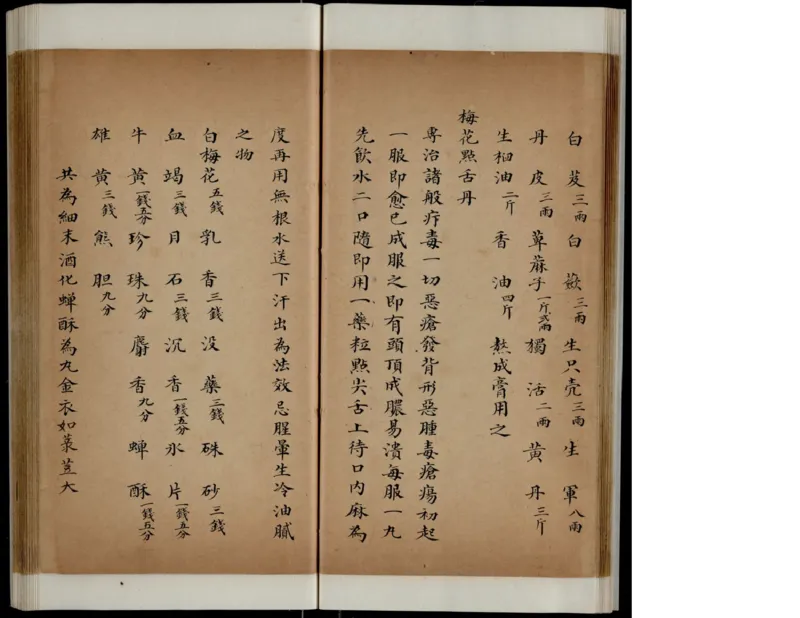 白芨三兩 白蘞三兩 生只壳三兩 生軍八兩
丹皮三兩 萆蔴子一斤 獨活二兩 黃丹三斤
生柏油二斤 香油四斤 熬成膏用之
梅花點舌丹
專治諸般疔毒一切惡瘡發背形惡腫毒瘡瘍初起
一服即愈已成服之即有頭頂成膿易潰每服一九
先飲水二口隨即用一藥粒點尖舌上待口內麻為
度再用無根水送下汗出為法效忌腥暈生冷油膩
之物
白梅花五錢 乳香三錢 没藥三錢 硃砂三錢
血竭三錢 月石三錢 沉香一錢五分 氷片一錢五分
牛黃一錢五分 珍珠九分 麝香九分 蟬酥一錢五分
雄黃三錢 熊胆九分
共為細末酒化蟬酥為丸金衣如菉荳大